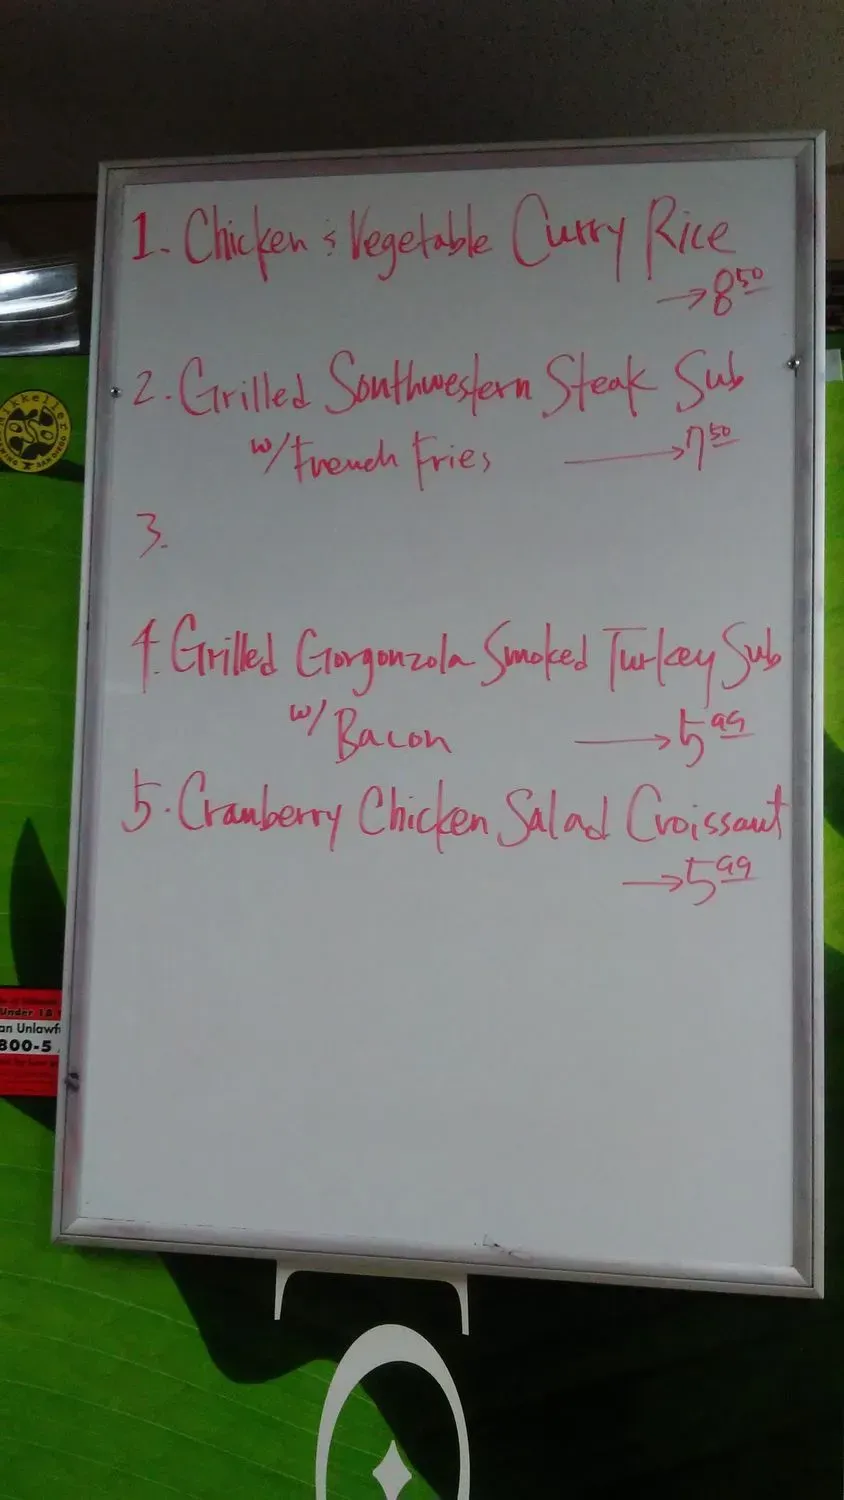 1. Chicken & Vegetable Curry Rice
→ 8 50
2. Grilled Southwestern Steak Sub
w/ French Fries → 7 50
3.
4. Grilled Gorgonzola Smoked Turkey Sub
w/ Bacon → 5 99
5. Cranberry Chicken Salad Croissant
→ 5 99
Mikkeller
SAN DIEGO
Under 18
an Unlawf
800-5